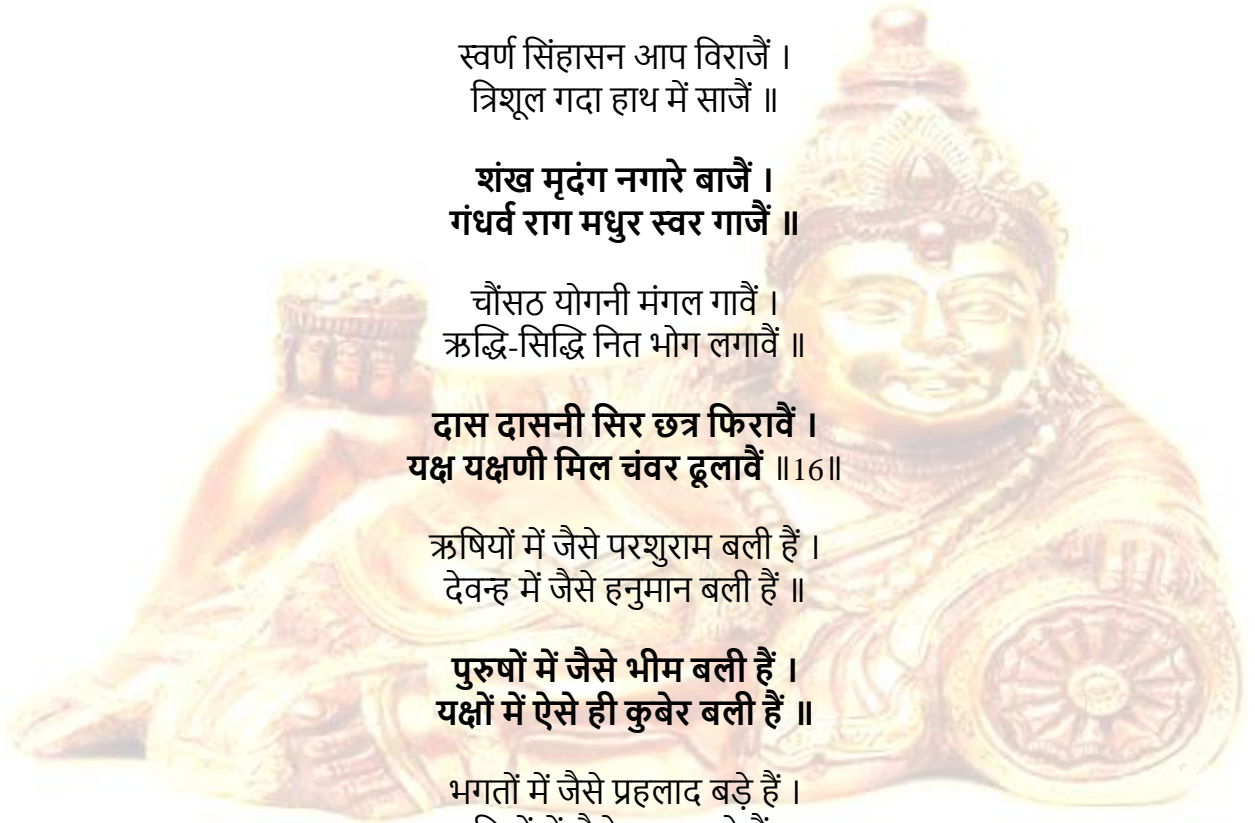 स्वर्ण सिंहासन आप विराजैं ।
त्रिशूल गदा हाथ में साजैं ॥
शंख मृदंग नगारे बाजैं ।
गंधर्व राग मधुर स्वर गाजैं ॥
चौंसठ योगनी मंगल गावैं ।
ऋद्धि-सिद्धि नित भोग लगावैं ॥
दास दासनी सिर छत्र फिरावैं ।
यक्ष यक्षणी मिल चंवर ढूलावैं ॥16॥
ऋषियों में जैसे परशुराम बली हैं ।
देवन्ह में जैसे हनुमान बली हैं ॥
पुरुषों में जैसे भीम बली हैं ।
यक्षों में ऐसे ही कुबेर बली हैं ॥
भगतों में जैसे प्रहलाद बड़े हैं ।